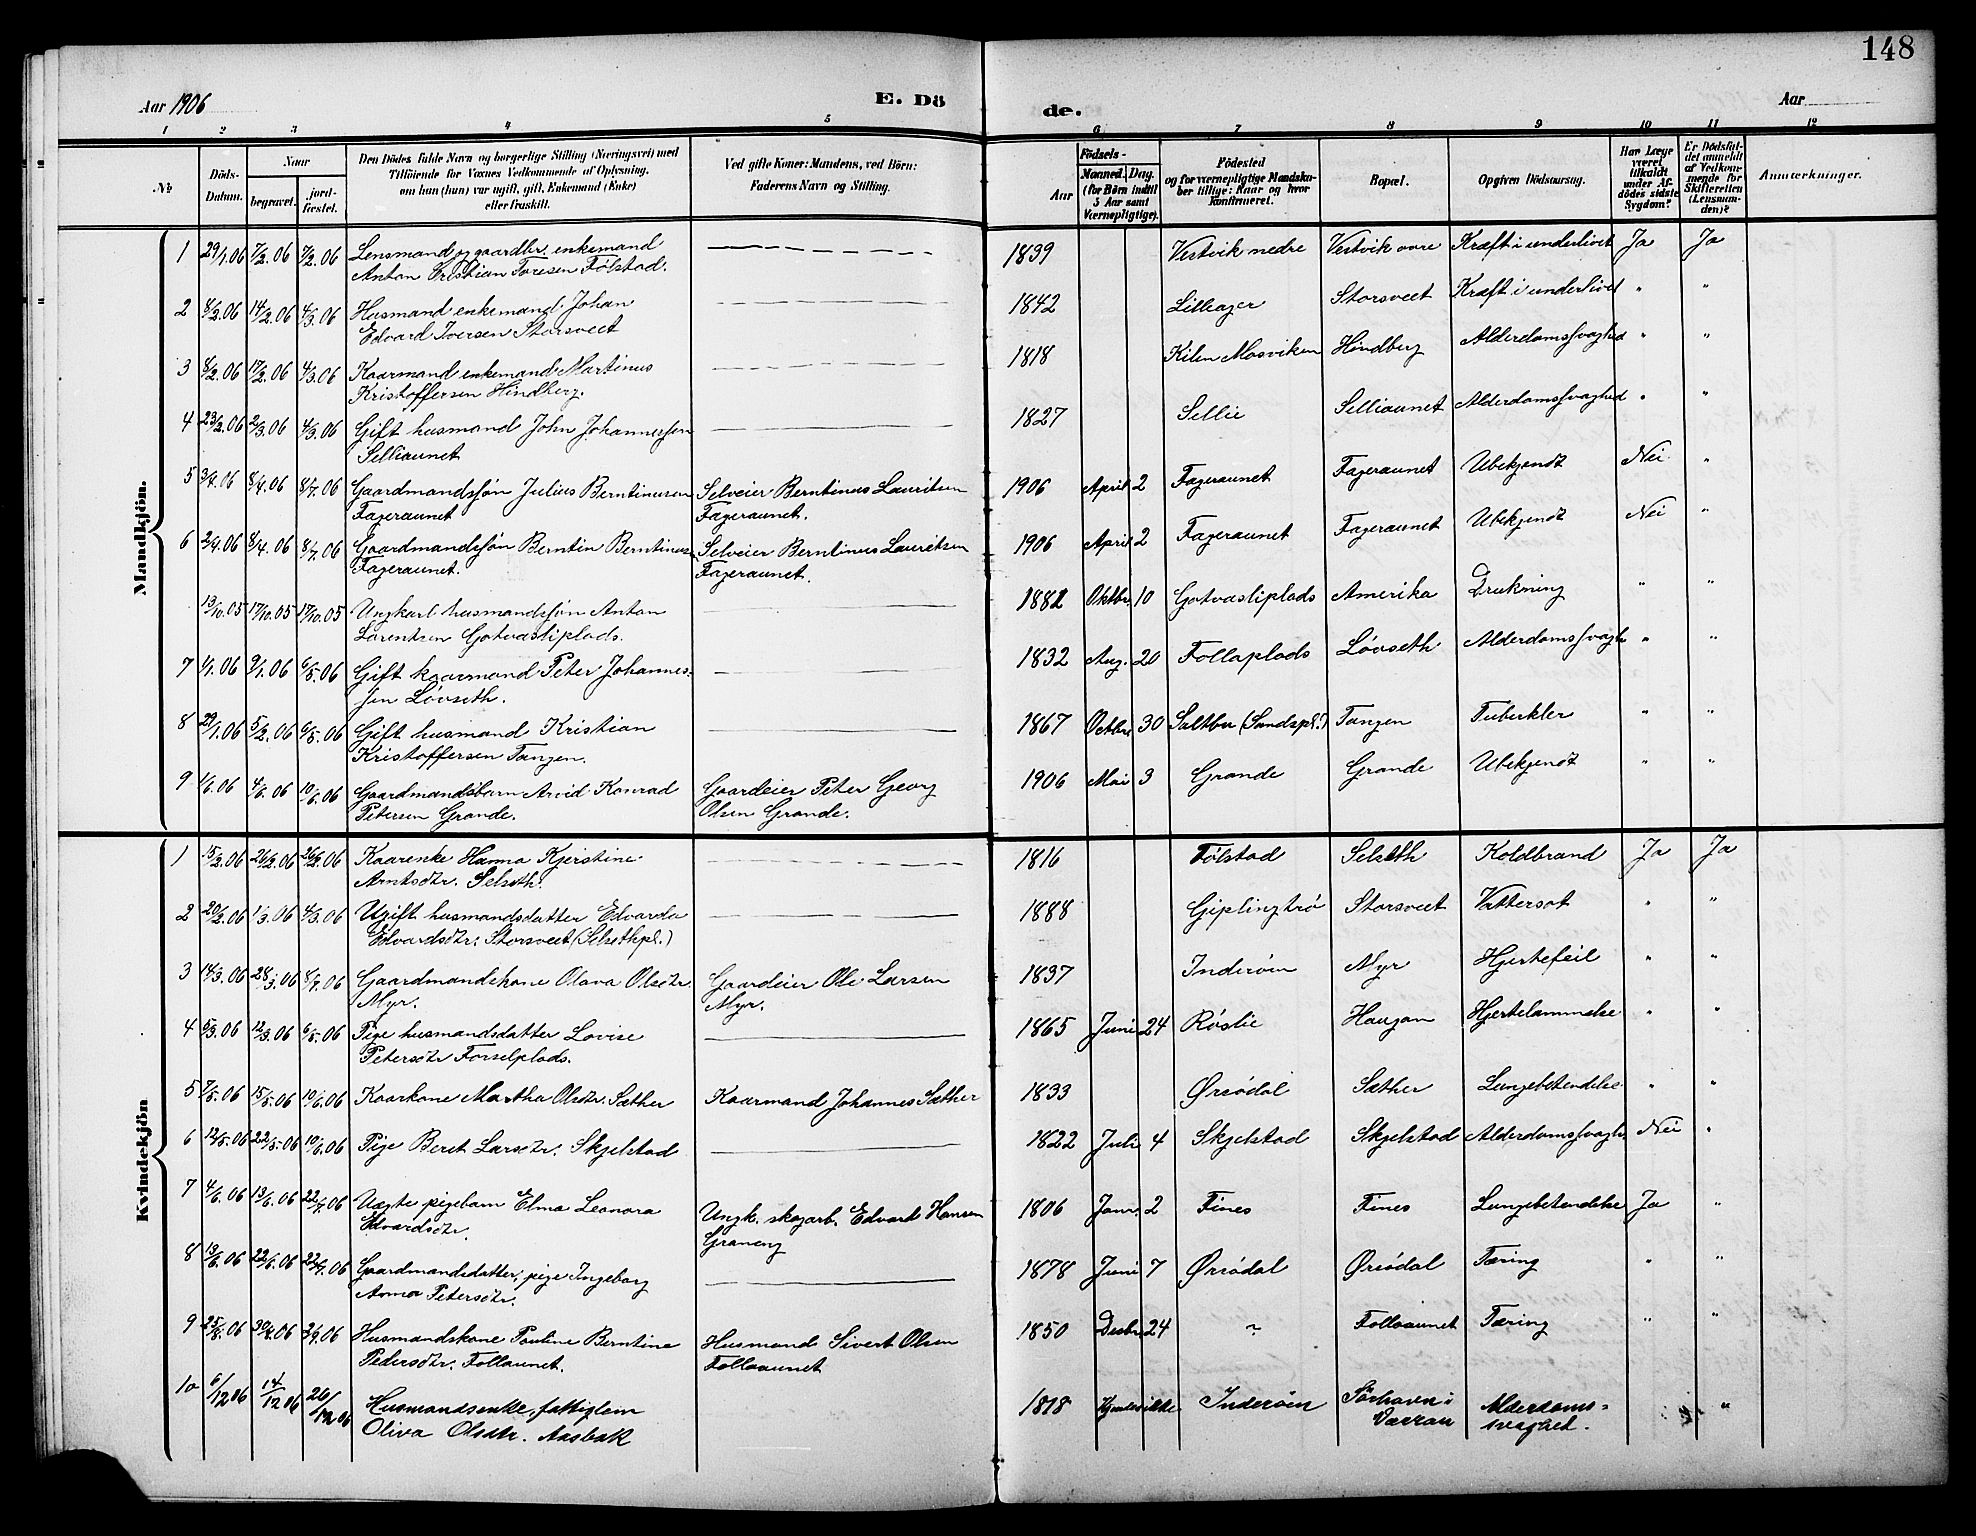 148
Aar 1906
E. Dö
de.
Aar
1 2 3 4 5 6 7 8 9 10 11 12
№
Döds-Datum.
Naar
begravet.
jord-fæstet.
Den Dödes fulde Navn og borgerlige Stilling (Næringsvei) med
Tilföiende for Voxnes Vedkommende af Oplysning,
om han (hun) var ugift, gift, Enkemand (Enke)
eller fraskilt.
Ved gifte Koner: Mandens, ved Börn:
Faderens Navn og Stilling.
Aar
Födsels-
Maaned. Dag.
(for Börn indtil
5 Aar samt
Værnepligtige).
Födested
og for værnepligtige Mandska-
ber tillige: Naar og hvor
konfirmeret.
Bopæl.
Opgiven Dödsaarsag.
Har Læge
været
tilkaldt
under Af-
dödes sidste
Sygdom?
Er Dödsfal-
det anmeldt
af Vedkom-
mende for
Skifteretten
(Lensman-
den)?
Anmærkninger.
Mandkjön.
1 29/1.06 7/2.06 7/2.06 Lensmand og gaardbr. enkemand 1839 Vestvik nedre Vestvik øvre Kræft i underlivet Ja Ja
Anton Kristian Toresen Følstad.
2 8/2.06 14/2.06 4/3.06 Husmand enkemand Johan 1842 Lilleager Storsveet Kræft i underlivet " "
Edvard Iversen Storsveet
3 8/2.06 17/2.06 4/3.06 Kaarmand enkemand Martinus 1818 Kilen Mosviken Hindberg Alderdomssvaghed " "
Kristoffersen Hindberg.
4 23/2.06 2/3.06 4/3.06 Gift husmand John Johannessen 1827 Sellie Selliaunet Alderdomssvaghed " "
Selliaunet
5 3/4.06 8/4.06 8/7.06 Gaardmandssøn Julius Berntinusen Selveier Berntinus Lauritsen 1906 April 2 Fageraunet Fageraunet Ubekjendt Nei "
Fageraunet Fageraunet.
6 3/4.06 8/4.06 8/7.06 Gaardmandssøn Berntin Berntinusen Selveier Berntinus Lauritsen 1906 April 2 Fageraunet Fageraunet Ubekjendt Nei "
Fageraunet. Fageraunet.
13/10.05 17/10.05 17/10.05 Ungkarl husmandssøn Anton 1882 Oktbr. 10 Gotvasliplads Amerika Drukning " "
Lorentsen Gotvasliplads.
7 1/1.06 9/1.06 6/5.06 Gift kaarmand Peter Johannes- 1832 Aug. 20 Follaplads Løvseth Alderdomssvagh " "
sen Løvseth.
8 29/1.06 5/2.06 6/5.06 Gift husmand Kristian 1867 Octbr 30 Saltbu (Sundspl.) Tangen Tuberkler " "
Kristoffersen Tangen.
9 1/6.06 4/6.06 10/6.06 Gaardmandsbarn Arvid Konrad Gaardeier Peter Georg 1906 Mai 3 Grande Grande Ubekjendt " "
Petersen Grande. Olsen Grande.
Kvindekjön
1 15/2.06 26/2.06 26/2.06 Kaarenke Hanna Kjerstine 1816 Følstad Selseth Koldbrand Ja Ja
Arntsdtr. Selseth.
2 20/2.06 1/3.06 4/3.06 Ugift husmandsdatter Edvarda 1888 Giplingtrø Storsveet Vattersot " "
Edvardsdtr. Storsveet (Selsethpl.)
3 14/3.06 28/3.06 8/7.06 Gaardmandskone Olava Olsdtr. Gaardeier Ole Larsen 1837 Inderøen Myr Hjertefeil " "
Myr. Myr.
4 5/3.06 12/3.06 6/5.06 Pige husmandsdatter Lovise 1865 Juni 24 Røslie Haugan Hjertelammelse " "
Petersdtr Forselplads.
5 7/5.06 15/5.06 10/6.06 Kaarkone Martha Olsdtr. Sæther Kaarmand Johannes Sæther 1833 Ørsödal Sæther Lungebetendelse " "
6 12/5.06 22/5.06 10/6.06 Pige Beret Larsdtr. Skjelstad 1822 Juli 4 Skjelstad Skjelstad Alderdomssvagh. Nei "
7 4/6.06 13/6.06 22/7.06 Uægte pigebarn Elma Leonora Ungk. skogarb. Edvard Hansen 1806 Jan. 2 Fines Fines Lungebetendelse Ja "
Edvardsdtr. Graneng
8 13/6.06 22/6.06 22/7.06 Gaardmandsdatter, pige Ingeborg 1878 Juni 7 Ørsödal Ørsödal Tæring " "
Anna Petersdtr.
9 25/8.06 30/8.06 2/9.06 Husmandskone Pauline Berntine Husmand Sivert Olsen 1850 Desbr 24 ? Follaaunet Tæring " "
Pedersdtr. Follaunet. Follaaunet
10 6/12 06 14/12 06 26/12 06 Husmandsenke, fattiglem 1818 Kjendes ikke Inderøen Sörhavn i Alderdoms- "
Oliva Olsdtr. Aasbak Værran svaghed.